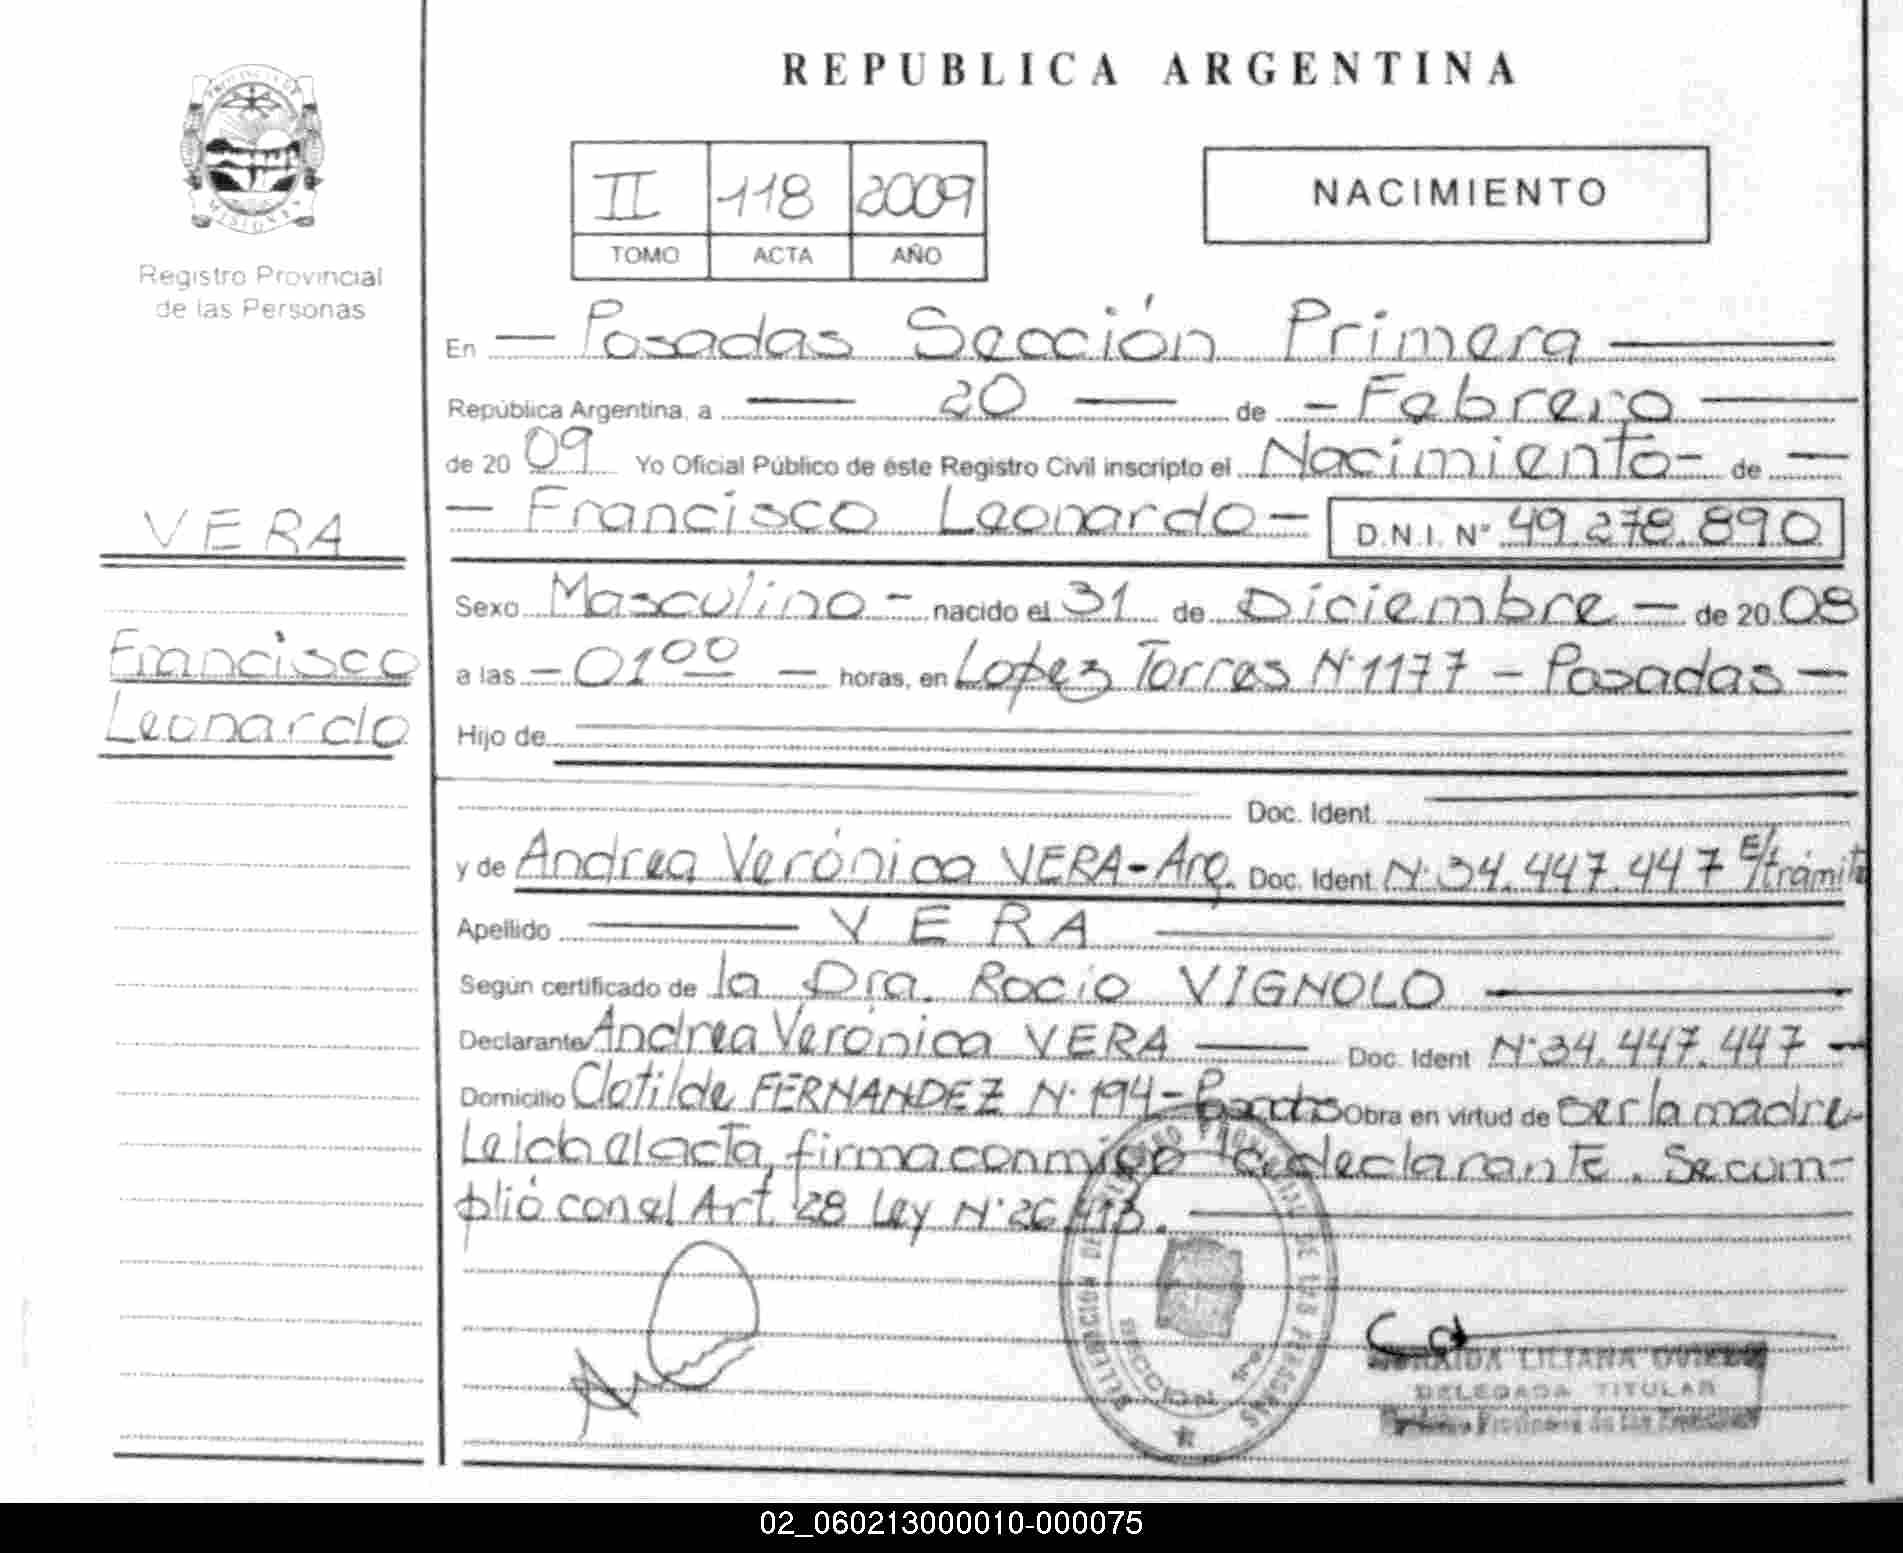 REPUBLICA ARGENTINA
PROVINCIA DE
MISIONES
Registro Provincial
de las Personas
II 118 2009
TOMO ACTA AÑO
NACIMIENTO
En Posadas Sección Primera
República Argentina, a 20 de Febrero
de 20 09 Yo Oficial Público de éste Registro Civil inscripto el Nacimiento de
Francisco Leonardo D.N.I. Nº 49.278.890
VERA
Francisco
Leonardo
Sexo Masculino nacido el 31 de Diciembre de 20 08
a las 01 00 horas, en Lopez Torres Nº 1177 - Posadas
Hijo de
Doc. Ident.
y de Andrea Verónica VERA - Arg. Doc. Ident. Nº 34.447.447 E/trámite
Apellido VERA
Según certificado de la Dra. Rocio VIGNOLO
Declarante Andrea Verónica VERA Doc. Ident Nº 34.447.447
Domicilio Clotilde FERNANDEZ Nº 194 - Posadas Obra en virtud de ser la madre
Leida el acta, firma conmigo la declarante. Se cum-
plió con el Art. 28 Ley Nº 26.413.
REGISTRO PROVINCIAL DE LAS PERSONAS
SECCION
LILIANA
DELEGADA TITULAR
02_060213000010-000075